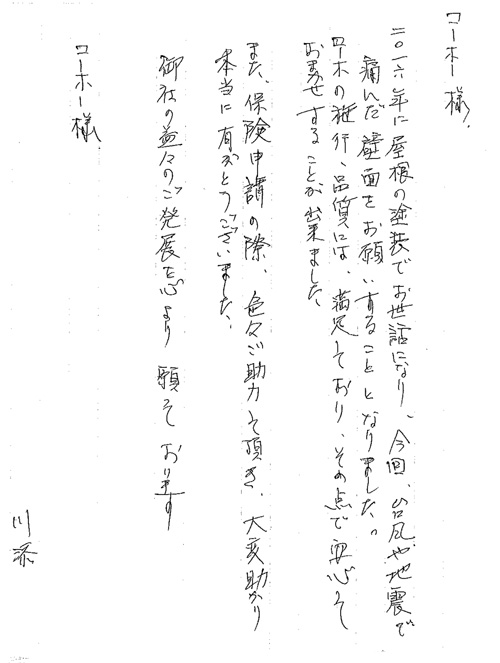 コーホー様
二〇一六年に屋根の塗装でお世話になり、今回、台風や地震で
痛んだ壁面をお願いすることとなりました。
コーホーの施行、品質には、満足しており、その点で安心して
おまかせすることが出来ました。
また、保険申請の際、色々ご助力して頂き、大変助かり
本当に有がとうございました。
御社の益々のご発展を心より願っております
コーホー様
川添